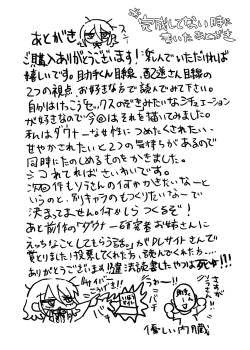 ※完成してない時に
書いたあとがき
あとがき
ご購入ありがとうございます!楽しんでいただければ
嬉しいです。助手くん目線、配達さん目線の
2つの視点、お好きな方で読んでみて下さい。
自分はけっこうセックスのぞきみたいなシチュエーション
が好きなので今回はそれを描いてみました。
私はダウナーな女性につめたくされたい・
甘やかされたいと2つの気持ちがあるので
同時にたのしめるものをかきました。
シコれてればさいわいです。
次回作もリうさんの何かかきたいなーと
いうのと、別キャラのもつくりたいなーで
決まってません。何かしらつくるぞ!
あと前作の「ダウナー研究者お姉さんに
えっちなことしてもらう話。」がDLサイトさんで
賞とりました!投票してくれた方、読んでくれた方…
ありがとうございます!!違法読書したやつは死や!!!
サイバー
こうげき!!
うわー!!
優しい内臓